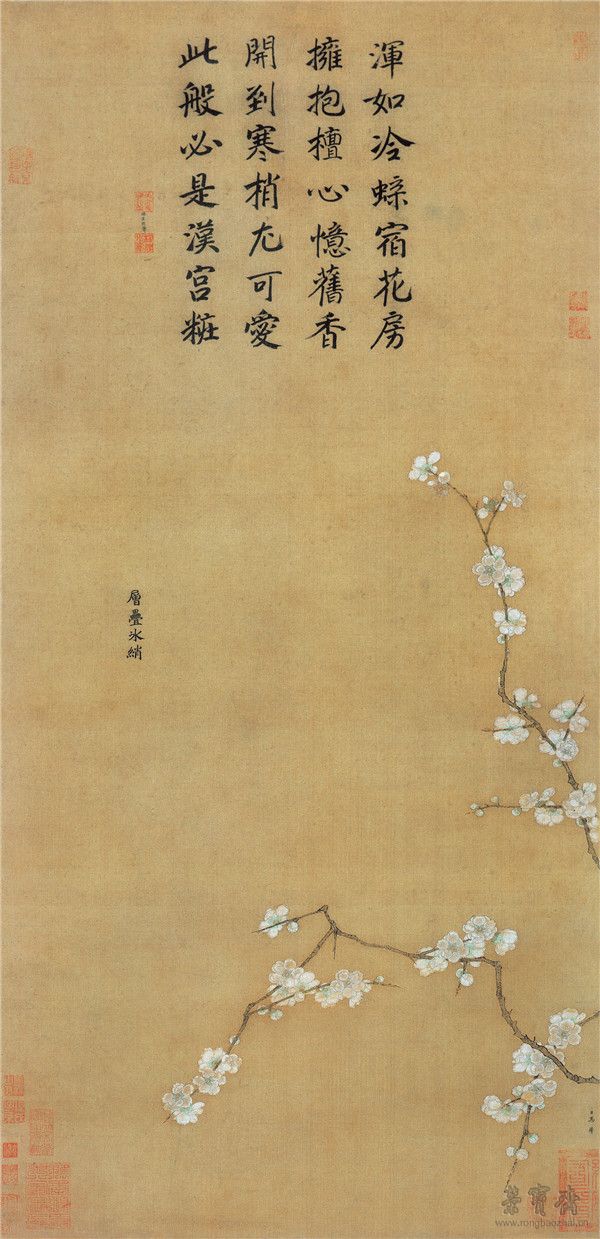 渾如冷蝶宿花房
擁抱檀心憶舊香
開到寒梢尤可愛
此般必是漢宮粧
層疊冰綃
臣馬麟
榮寶齋
www.rongbaozhai.cn